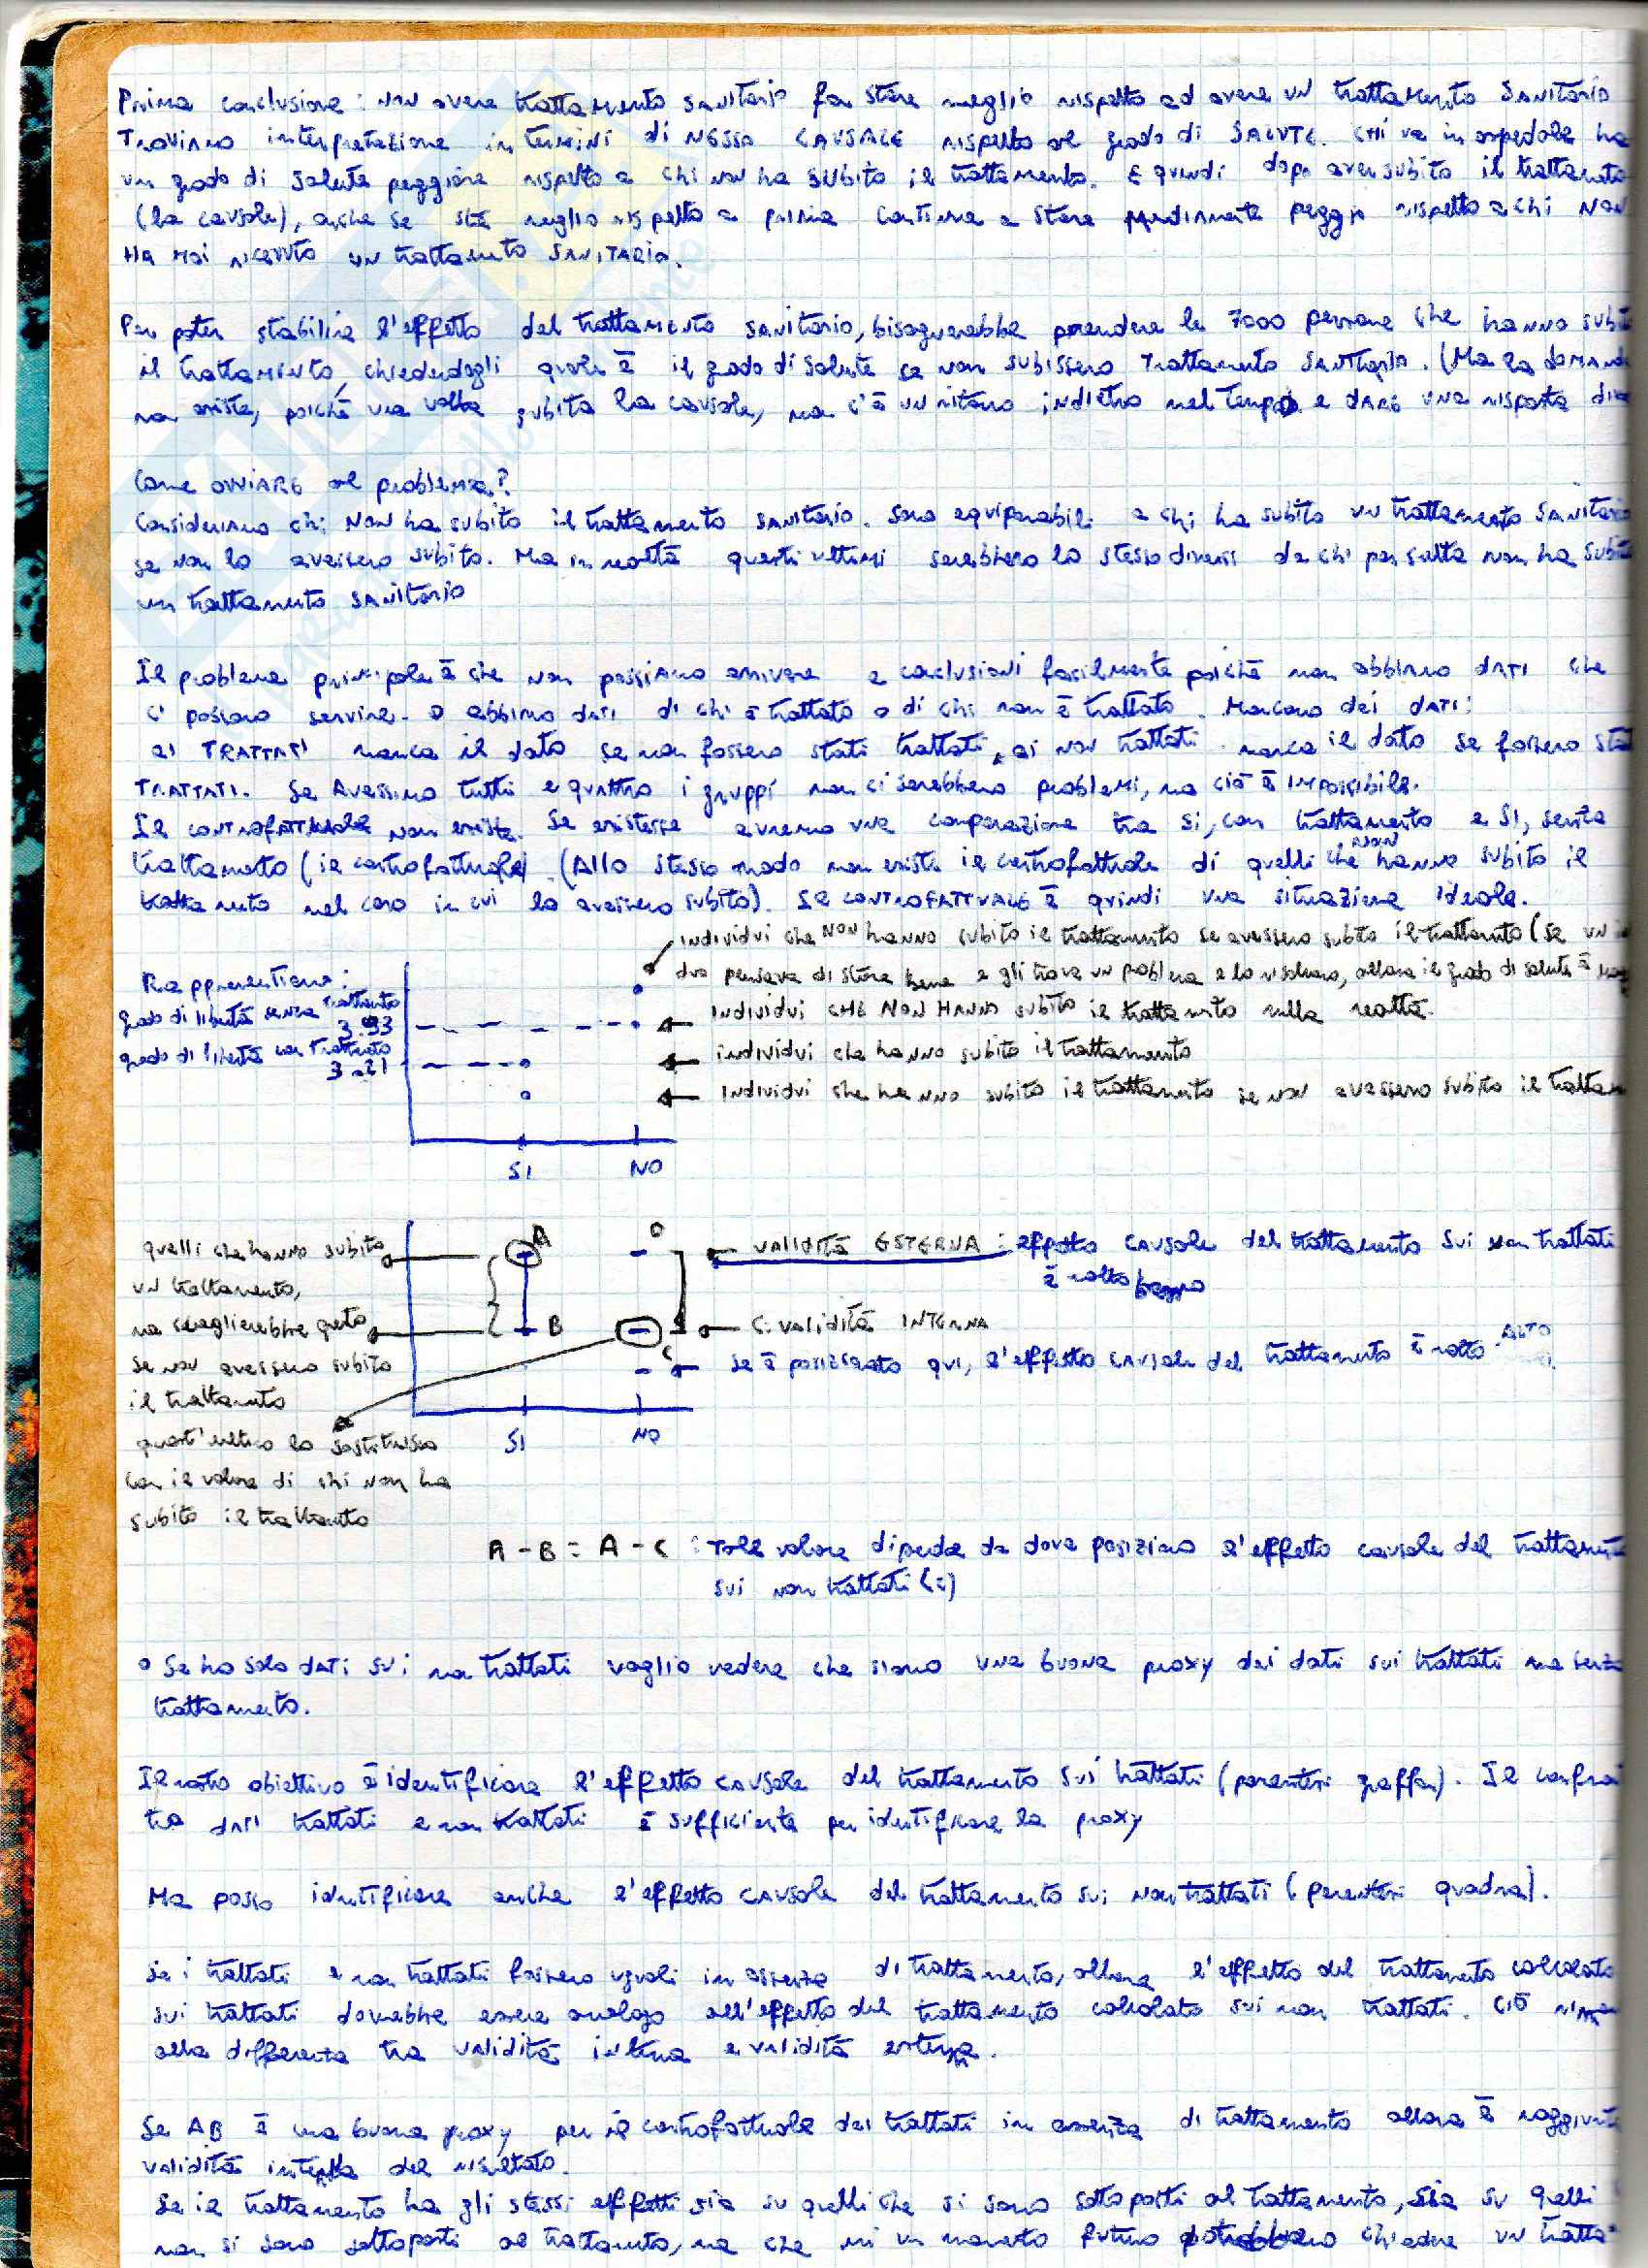 Prima conclusione: non avere trattamento sanitario fa stare meglio rispetto ad avere un trattamento sanitario
Troviamo interpretazione in termini di NESSO CAUSALE rispetto al grado di SALUTE. Chi va in ospedale ha
un grado di salute peggiore rispetto a chi non ha subito il trattamento. E quindi dopo aver subito il trattamento
(la causale), anche se sta meglio rispetto a prima continua a stare mediamente peggio rispetto a chi NON
HA mai ricevuto un trattamento SANITARIO.
Per poter stabilire l'effetto del trattamento sanitario, bisognerebbe prendere le 7000 persone che hanno subito
il trattamento, chiedendogli qual è il grado di salute se non subissero trattamento sanitario. (Ma la domanda
non esiste, poiché una volta subita la causale, non c'è un ritorno indietro nel tempo e DARE una risposta
Come OVVIARE al problema?
Consideriamo chi NON ha subito il trattamento sanitario. Sono equiparabili a chi ha subito un trattamento sanitario
se non lo avessero subito. Ma in realtà questi ultimi sarebbero lo stesso diversi da chi per scelta non ha subito
un trattamento sanitario
Il problema principale è che non possiamo arrivare a conclusioni facilmente poiché non abbiamo DATI che
ci possono servire. O abbiamo dati di chi è trattato o di chi non è trattato. Mancano dei DATI:
ai TRATTATI manca il dato se non fossero stati trattati, ai non trattati manca il dato se fossero
TRATTATI. Se Avessimo tutti e quattro i gruppi non ci sarebbero problemi, ma ciò è IMPOSSIBILE.
Il CONTROFATTUALE non esiste. Se esistesse avremo una comparazione tra SI, con trattamento e SI, senza
trattamento (il controfattuale). (Allo stesso modo non esiste il controfattuale di quelli che NON hanno subito il
trattamento nel caso in cui lo avessero subito). Il CONTROFATTUALE è quindi una situazione ideale.
individui che NON hanno subito il trattamento se avessero subito il trattamento (se un
duo pensava di stare bene e gli trova un problema e lo risolvono, allora il grado di salute è
Rappresentiamo:
grado di libertà senza trattamento
3.93
individui CHE NON HANNO subito il trattamento nella realtà.
grado di libertà con trattamento
3.21
individui che hanno subito il trattamento
Individui che hanno subito il trattamento se non avessero subito il
SI NO
quelli che hanno subito
un trattamento,
ma sceglierebbe questo
se non avessero subito
il trattamento
quest'ultimo lo sostituisco
con il valore di chi non ha
subito il trattamento
A
D
B
C
SI NO
VALIDITÀ ESTERNA: effetto causale del trattamento sui non trattati
è molto basso
C: VALIDITÀ INTERNA
se è posizionato qui, l'effetto causale del trattamento è molto ALTO
A - B = A - C : Tale valore dipende da dove posiziono l'effetto causale del trattamento
sui non trattati (C)
o Se ho solo DATI sui non trattati voglio vedere che siano una buona proxy dei dati sui trattati ma senza
trattamento.
Il nostro obiettivo è identificare l'effetto causale del trattamento sui trattati (parentesi graffa). Il
tra dati trattati e non trattati è sufficiente per identificare la proxy
Ma posso identificare anche l'effetto causale del trattamento sui Non trattati (parentesi quadra).
Se i trattati e non trattati fossero uguali in assenza di trattamento, allora l'effetto del trattamento calcolato
sui trattati dovrebbe essere analogo all'effetto del trattamento calcolato sui non trattati. Ciò
alla differenza tra validità interna e validità esterna.
Se AB è una buona proxy per il controfattuale dei trattati in assenza di trattamento allora è raggiunta
validità interna del risultato.
Se il trattamento ha gli stessi effetti sia su quelli che si sono sottoposti al trattamento, sia su quelli
non si sono sottoposti al trattamento, ma che in un momento futuro potrebbero chiedere un